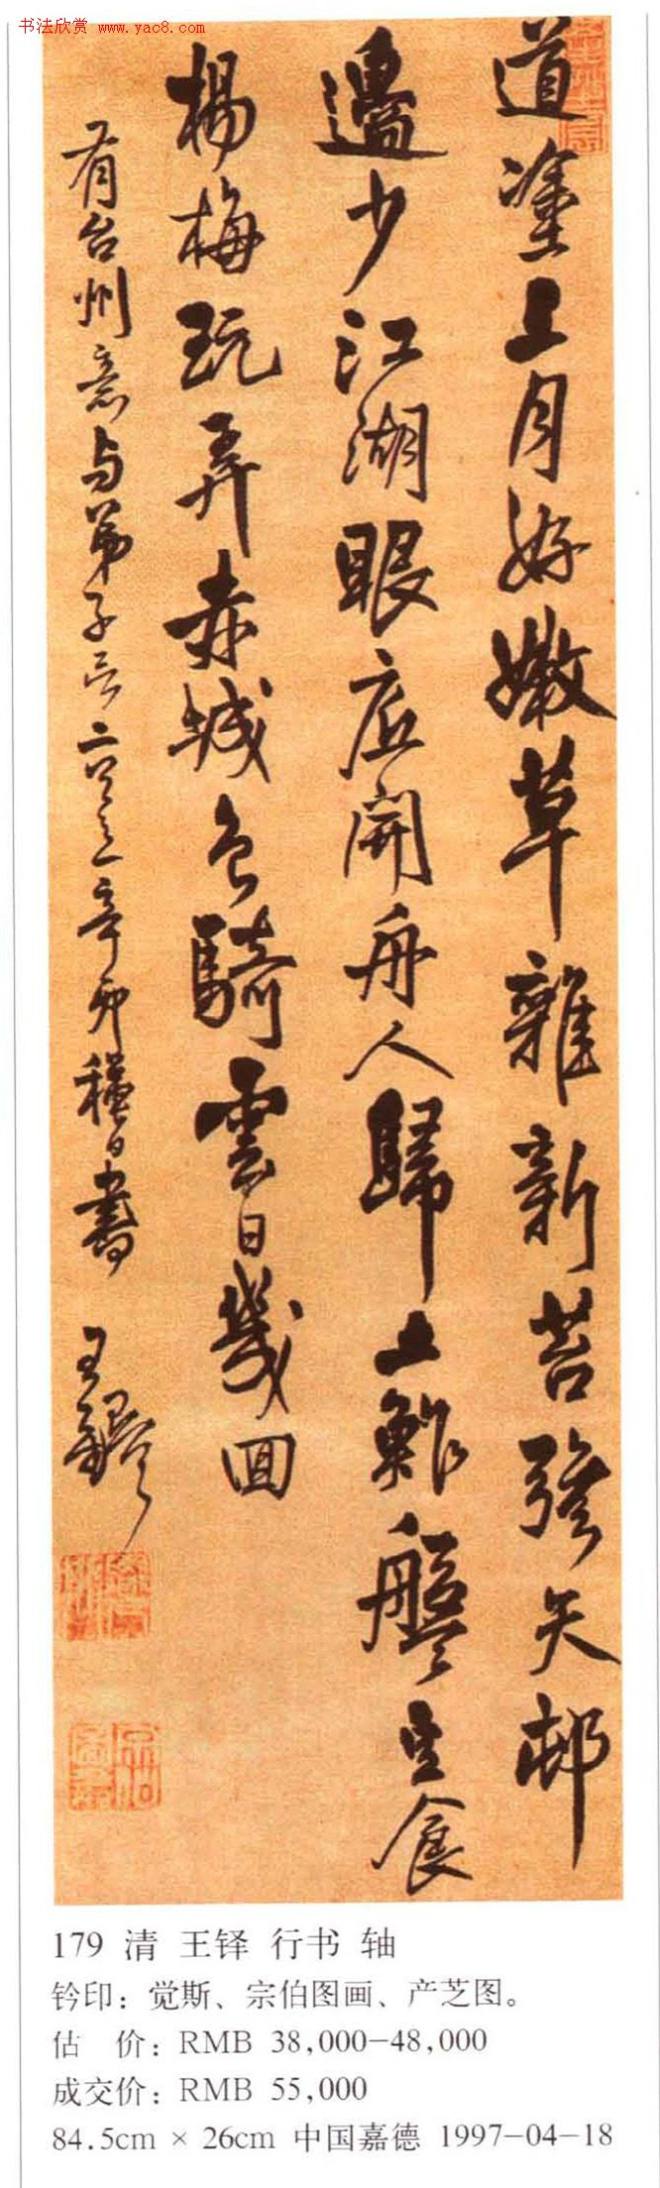 书法欣赏 www.yac8.com
道塗上月好嫩草雜新苔強矢邨
邊少江湖眼應開舟人歸上鮓盤食
楊梅玩弄赤城色騎雲日幾回
有台州意与弟子二首辛卯日書 王鐸
179 清 王铎 行书 轴
钤印：觉斯、宗伯图画、产芝图。
估 价：RMB 38,000-48,000
成交价：RMB 55,000
84.5cm × 26cm 中国嘉德 1997-04-18